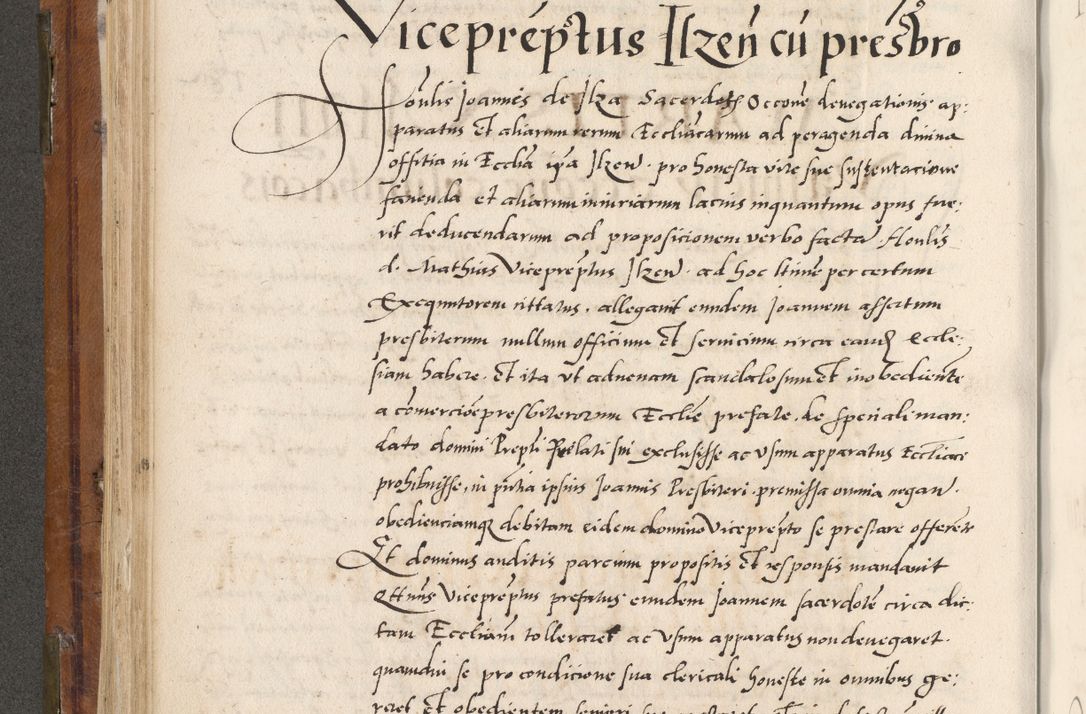 Vicepreptus Ilzen cu presbro
Honlis Joannes de Ilza Sacerdos Occone denegationis ap:
paratus Et aliarum rerum Ecclicarum ad peragenda divina
offitia in Ecclia ipa Ilzen. pro honesta vite sue sustentacione
facienda et aliarum iniuriarum lacius inquantum opus fue:
rit deducendarum ad proposicionem verbo facta Honlis
d. Mathias Vicepreptus Ilzen. ad hoc per certum
Exequutorem cittatus. allegavit eundem Joannem assertum
presbiterum nullum officium Et servicium circa eand Eccle:
siam habere. Et ita ut advenam scandalosum Et inobediente
a comercio presbiterorum Ecclie prefate. de speciali man:
dato domini Prepti Prelati sui exclusisse ac usum apparatus Eccliace
prohibuisse, in pntia ipsius Joannis Presbiteri. premissa omnia negan.
obedienciamque debitam eidem domino Vicepreptо se prestare offerente
Et dominus auditis parcium propositis Et responsis mandavit
Vicepreptus prefatus eundem Joannem sacerdote circa dic:
tam Eccliam tolleraret ac usum apparatus non denegaret.
quamdiu se pro condicione sua clericali honeste in omnibus ge:
reret. et obedientem